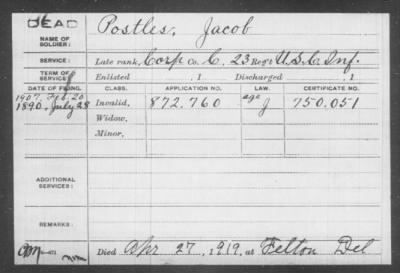 DEAD
NAME OF SOLDIER: Postles, Jacob
SERVICE: Late rank, Corp Co. C, 23 Reg't U.S.C. Inf.
TERM OF SERVICE: Enlisted , 1 Discharged , 1
DATE OF FILING. CLASS. APPLICATION NO. LAW. CERTIFICATE NO.
1907, Feb. 20
1890, July 28 Invalid, 872.760 age J 750.051
Widow,
Minor,
ADDITIONAL SERVICES:
REMARKS:
Died Apr 27, 1919, at Felton Del